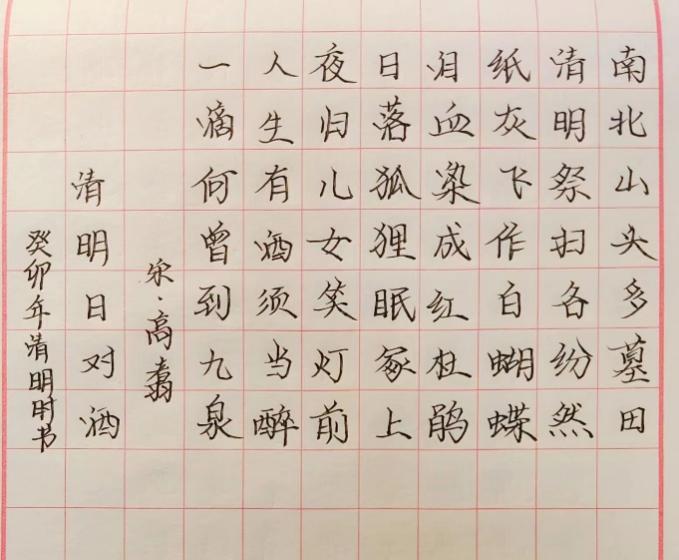 南北山头多墓田
清明祭扫各纷然
纸灰飞作白蝴蝶
泪血染成红杜鹃
日落狐狸眠冢上
夜归儿女笑灯前
人生有酒须当醉
一滴何曾到九泉
宋·高翥
清明日对酒
癸卯年清明时书